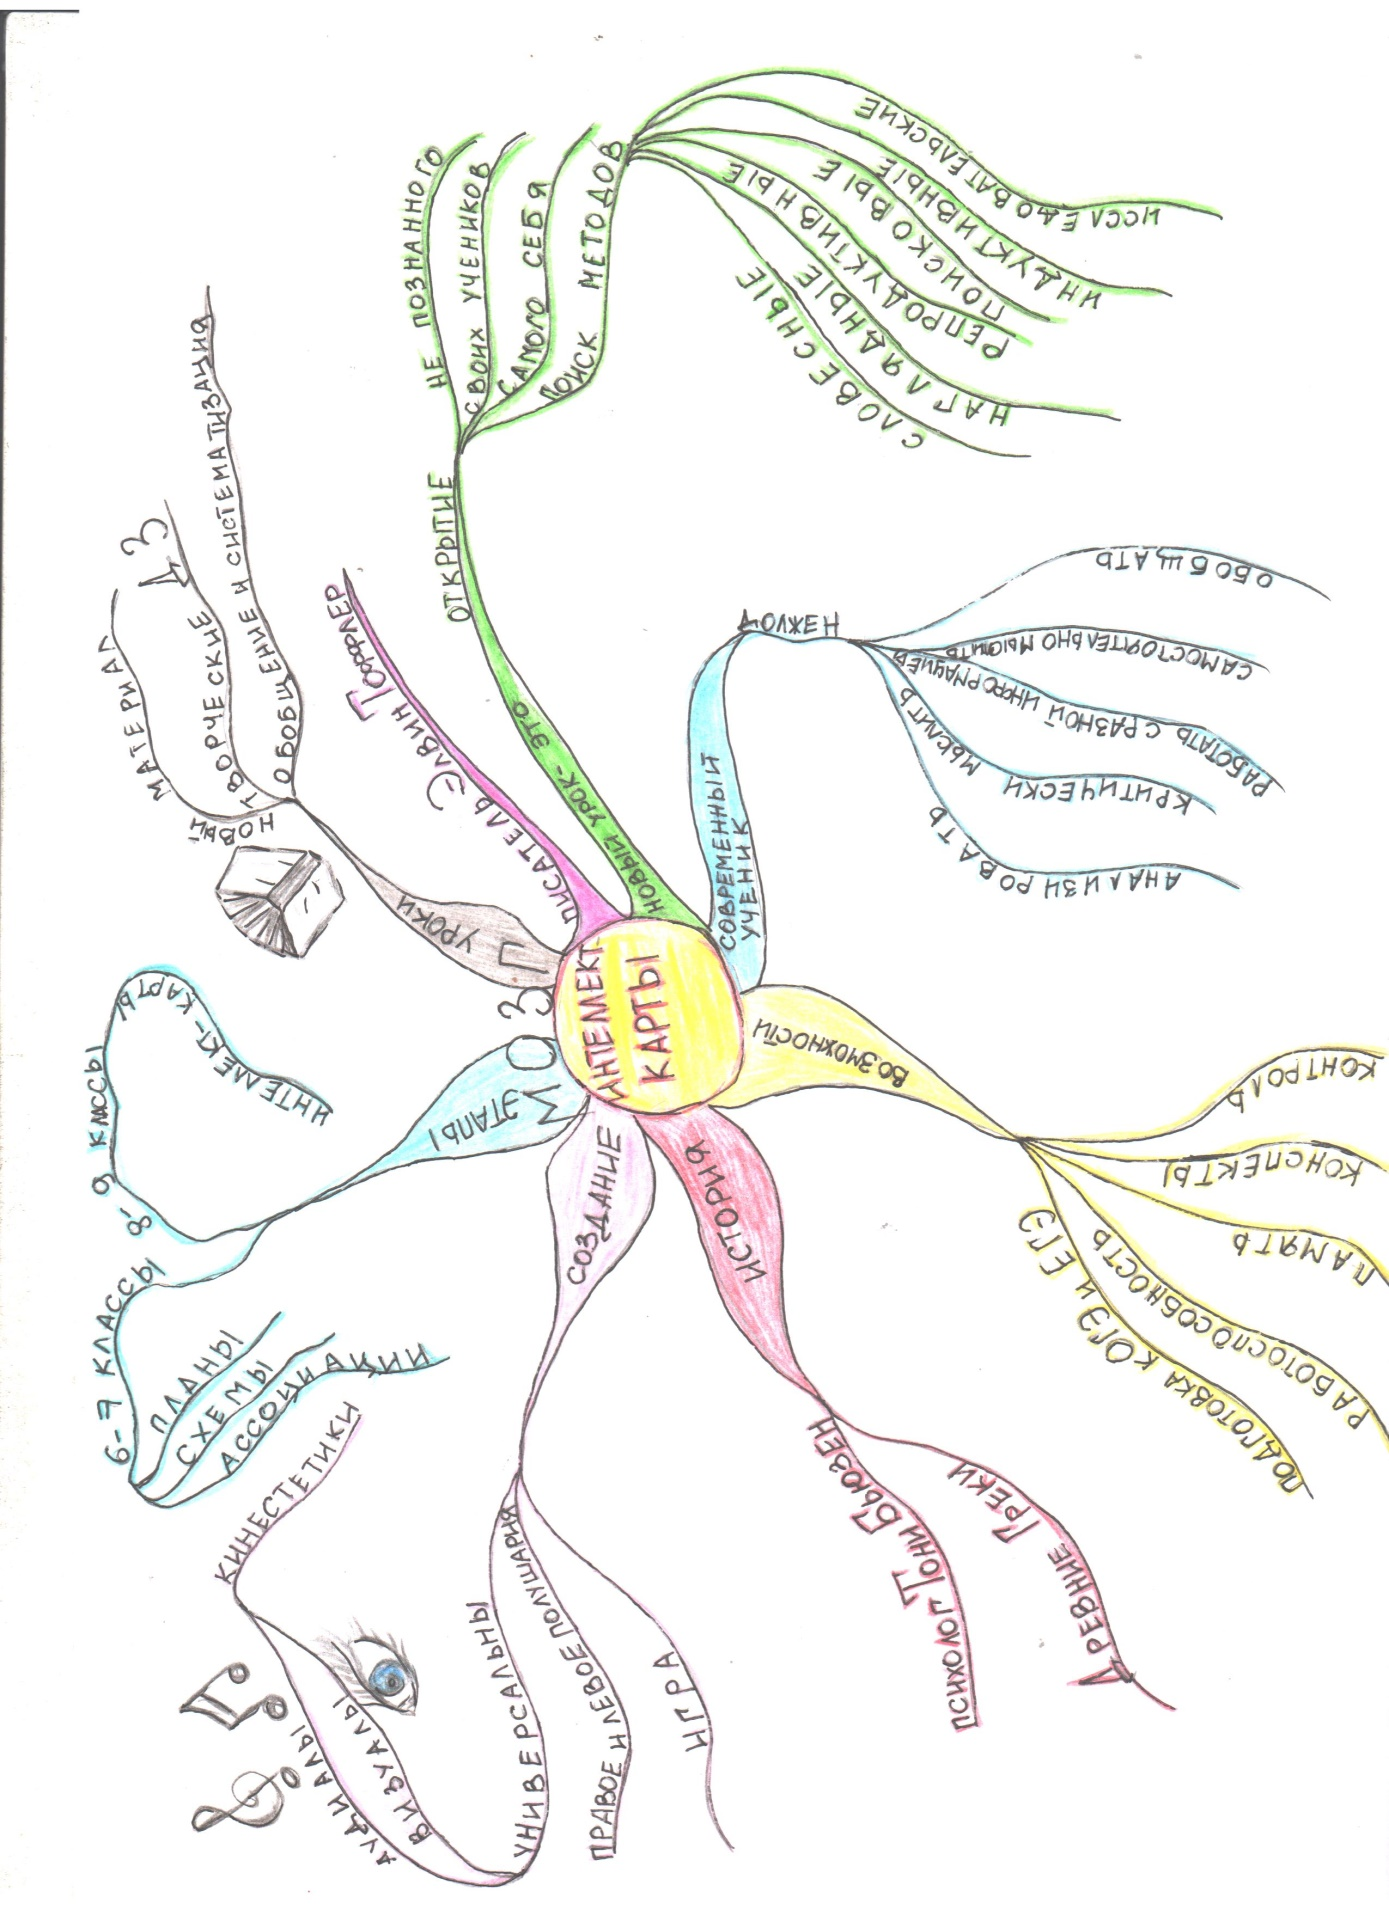 ИНТЕЛЛЕКТ
КАРТЫ
МОЗГ
НОВЫЙ УРОК- ЭТО
ОТКРЫТИЕ
НЕ ПОЗНАННОГО
СВОИХ УЧЕНИКОВ
САМОГО СЕБЯ
ПОИСК МЕТОДОВ
ИССЛЕДОВАТЕЛЬСКИЕ
ИНДУКТИВНЫЕ
ПОИСКОВЫЕ
РЕПРОДУКТИВНЫЕ
НАГЛЯДНЫЕ
СЛОВЕСНЫЕ
СОВРЕМЕННЫЙ
УЧЕНИК
ДОЛЖЕН
ОБОБЩАТЬ
САМОСТОЯТЕЛЬНО МЫСЛИТЬ
РАБОТАТЬ С РАЗНОЙ ИНФОРМАЦИЕЙ
КРИТИЧЕСКИ МЫСЛИТЬ
АНАЛИЗИРОВАТЬ
ВОЗМОЖНОСТИ
КОНТРОЛЬ
КОНСПЕКТЫ
ПАМЯТЬ
РАБОТОСПОСОБНОСТЬ
ПОДГОТОВКА К ОГЭ И ЕГЭ
ИСТОРИЯ
ДРЕВНИЕ ГРЕКИ
ПСИХОЛОГ ТОНИ БЬЮЗЕН
СОЗДАНИЕ
ИГРА
ПРАВОЕ И ЛЕВОЕ ПОЛУШАРИЯ
УНИВЕРСАЛЬНЫ
ВИЗУАЛЫ
АУДИАЛЫ
КИНЕСТЕТИКИ
ЭТАПЫ
6-7 КЛАССЫ
ПЛАНЫ
СХЕМЫ
АССОЦИАЦИИ
8-9 КЛАССЫ
ИНТЕЛЛЕКТ-КАРТЫ
УРОКИ
НОВЫЙ
МАТЕРИАЛ
ТВОРЧЕСКИЕ ДЗ
ОБОБЩЕНИЕ И СИСТЕМАТИЗАЦИЯ
ПИСАТЕЛЬ ЭЛВИН ТОФФЛЕР